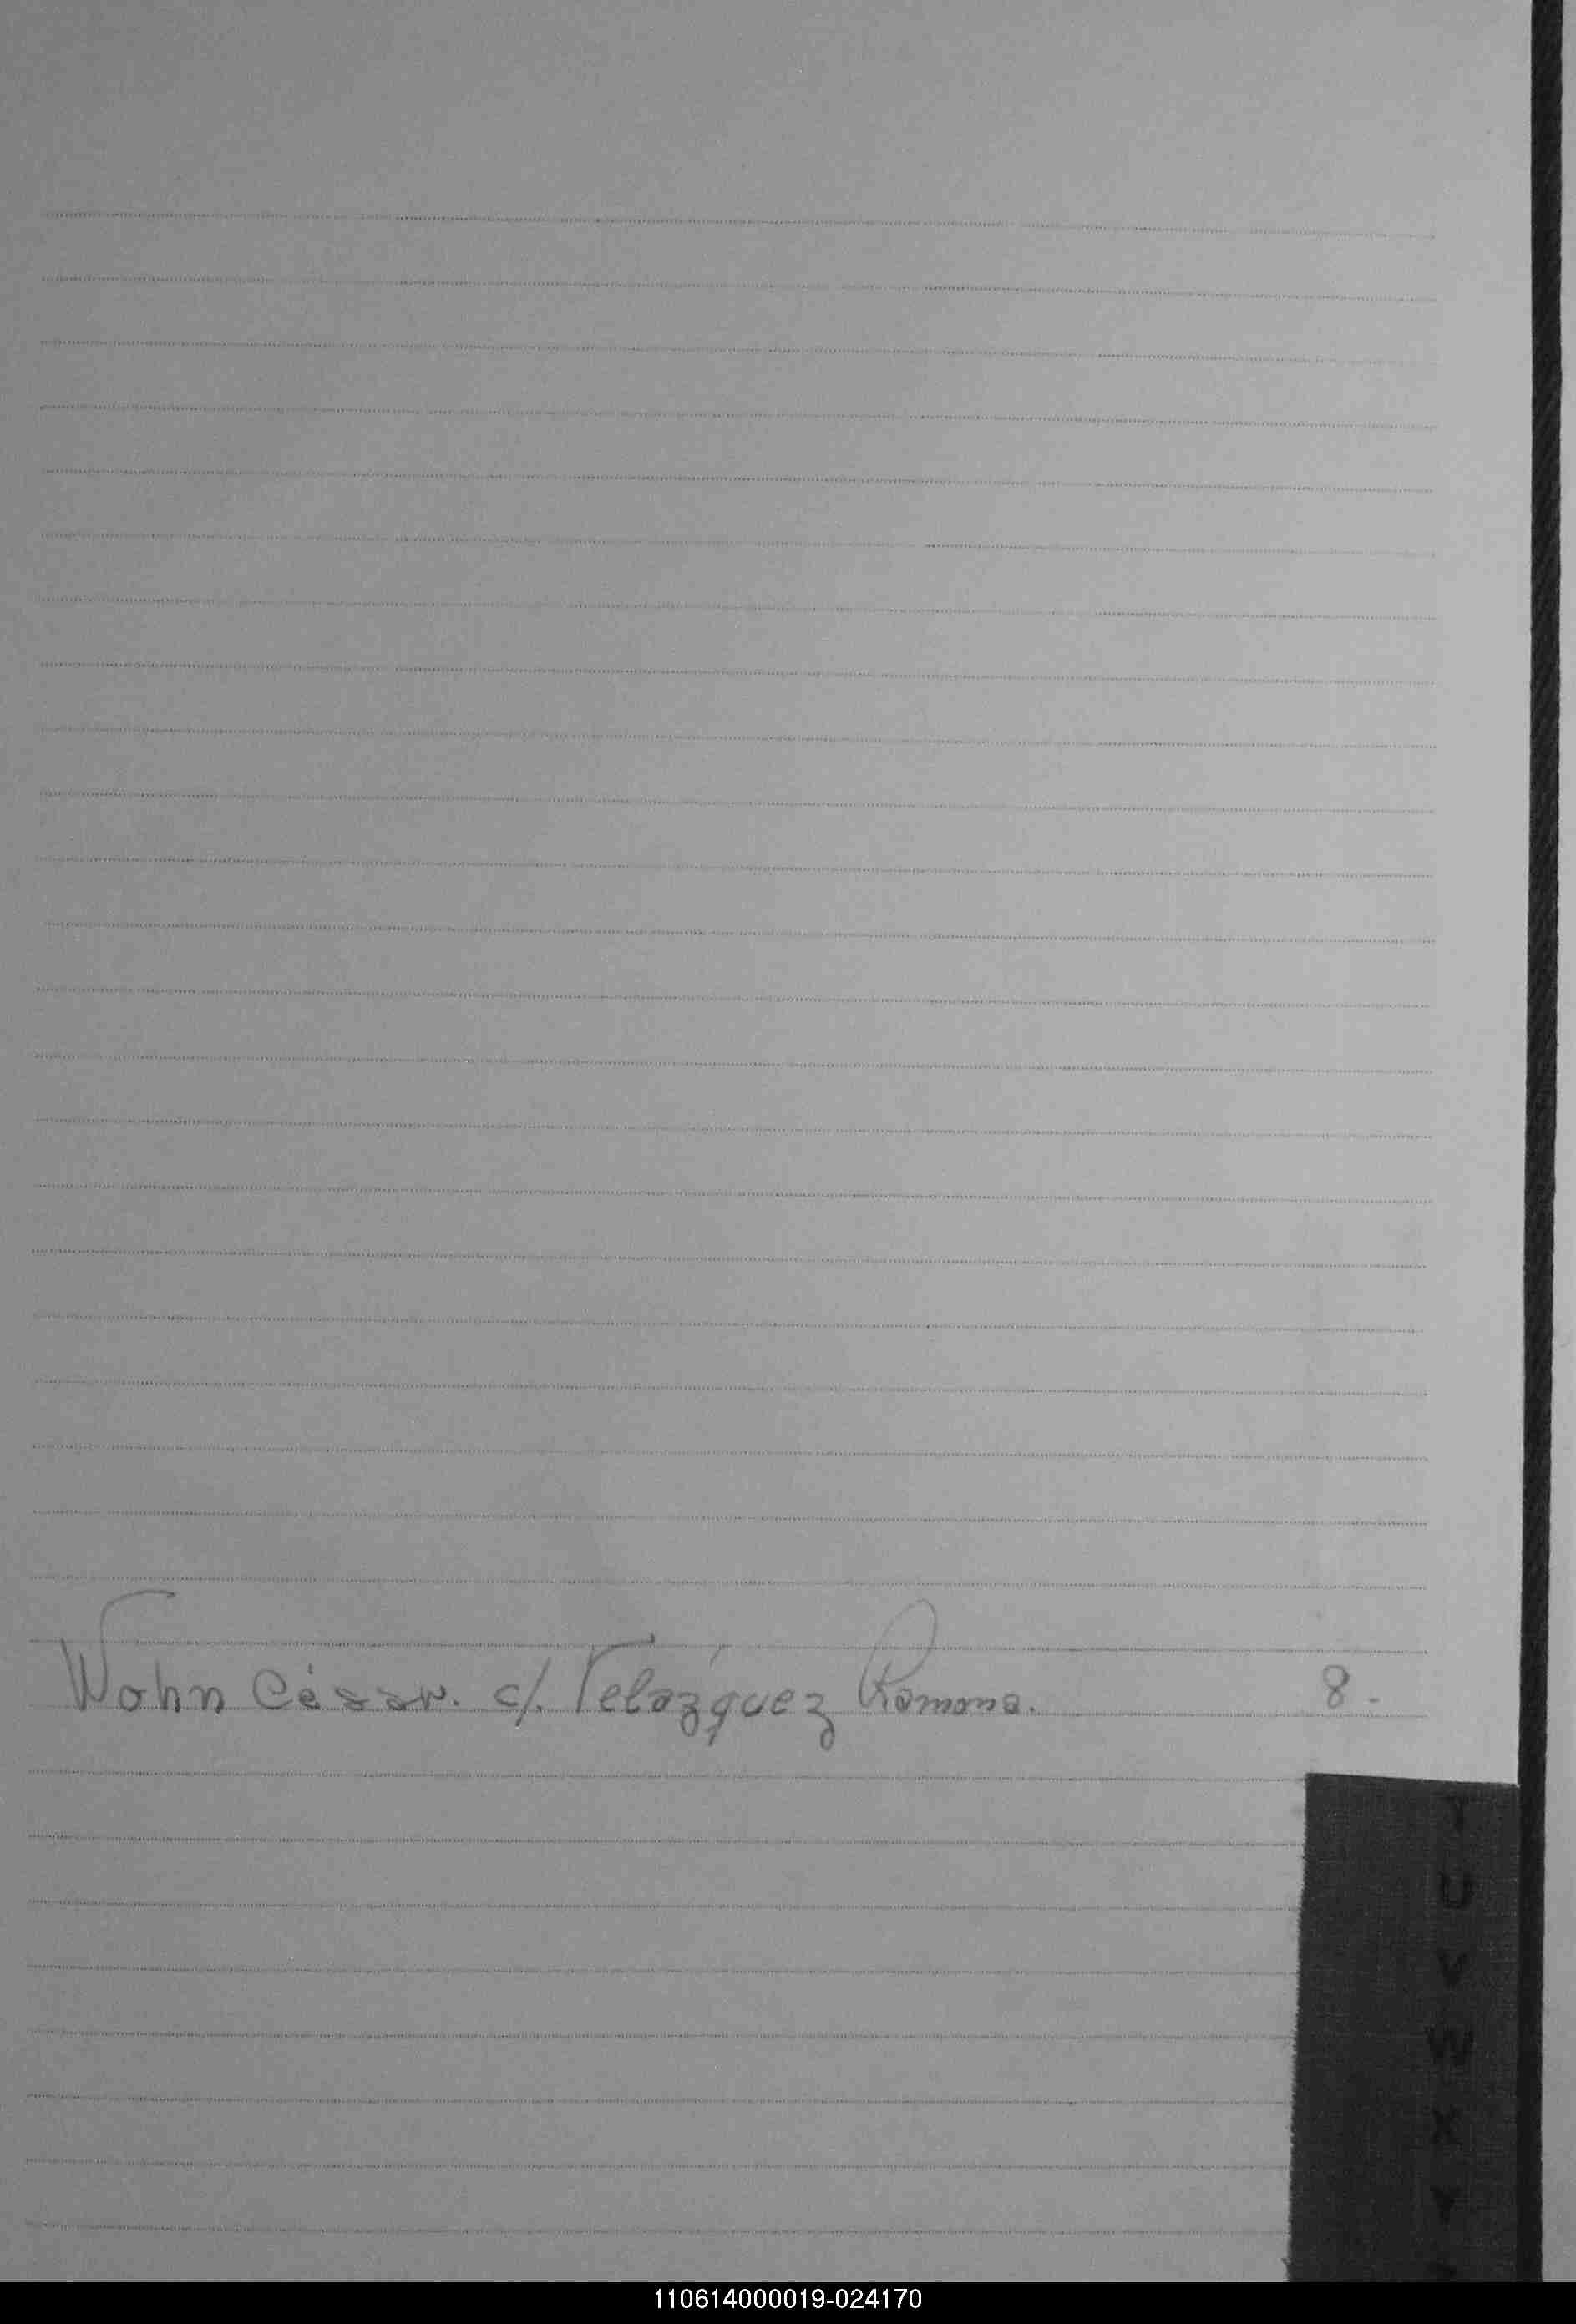 Wohn César. c/. Velázquez Ramona. 8.-
T
U
V
W
X
Y
110614000019-024170